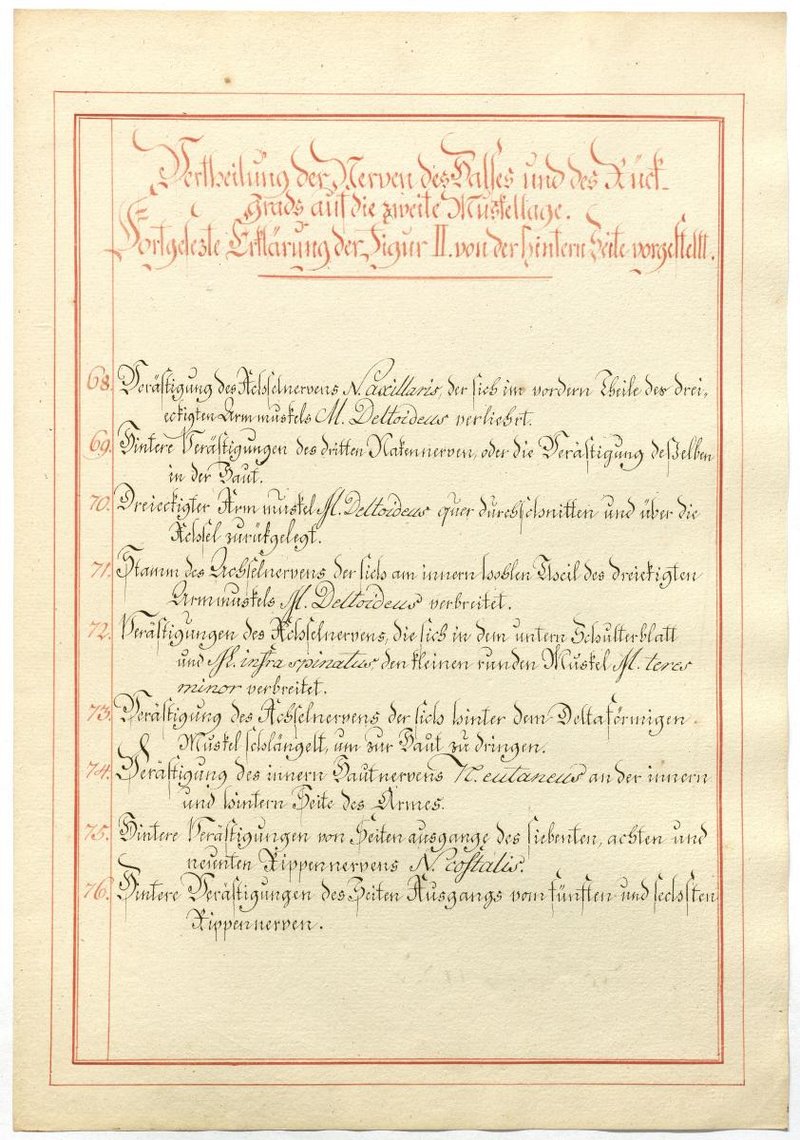 Vertheilung der Nerven des Halses und des Rück-
grads auf die zweite Muskellage.
Fortgesezte Erklärung der Figur II. von der hintern Seite vorgestellt.
68. Verästigung des Achselnervens N. axillaris, der sich im vordern Theile des drei,
eckigten Armmuskels M. Deltoideus verliehrt.
69. Hintere Verästigungen des dritten Nakennerven, oder die Verästigung deßelben
in der Haut.
70. Dreieckigter Arm muskel M. Deltoideus quer durchschnitten und über die
Achsel zurükgelegt.
71. Stamm des Achselnervens der sich am innern hohlen Theil des dreiekigten
Armmuskels M. Deltoideus verbreitet.
72. Verästigungen des Achselnervens, die sich in dem untern Schulterblatt
und M. infra spinatus, den kleinen runden Muskel M. teres
minor verbreitet.
73. Verästigung des Achselnervens der sich hinter dem Deltaförmigen
Muskel schlängelt, um zur Haut zu dringen.
74. Verästigung des innern Hautnervens N. cutaneus an der innern
und hintern Seite des Armes.
75. Hintere Verästigungen von Seiten ausgange des siebenten, achten und
neunten Rippennervens N. costalis.
76. Hintere Verästigungen des Seiten Ausgangs vom fünften und sechsten
Rippennerven.